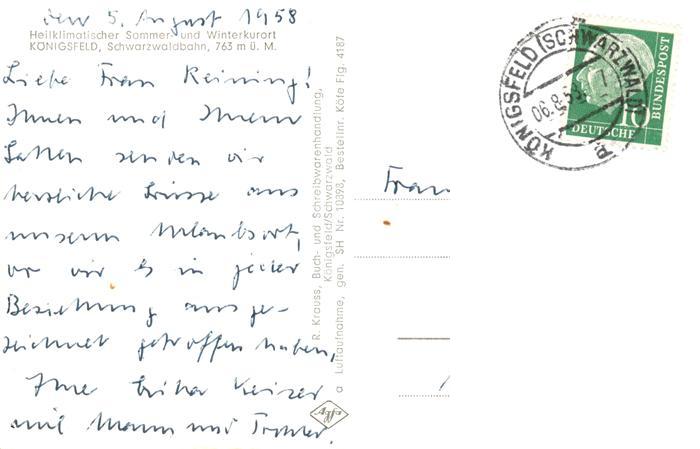 den 5. August 1958
Heilklimatischer Sommer- und Winterkurort
KÖNIGSFELD, Schwarzwaldbahn, 763 m ü. M.
Liebe Frau Reining!
Ihnen und Ihrem
Gatten senden wir
herzliche Grüsse aus
unserem Urlaubsort,
wo wir es in jeder
Beziehung ausge-
zeichnet getroffen haben,
Ihre Erika Keizer
mit Mann und Tochter.
R. Krauss, Buch- und Schreibwarenhandlung,
Königsfeld/Schwarzwald
a Luftaufnahme, gen. SH Nr. 10898, Bestellnr. Köfe Flg. 4187
Agfa
Frau
KÖNIGSFELD (SCHWARZWALD)
06.8.58
10
DEUTSCHE
BUNDESPOST